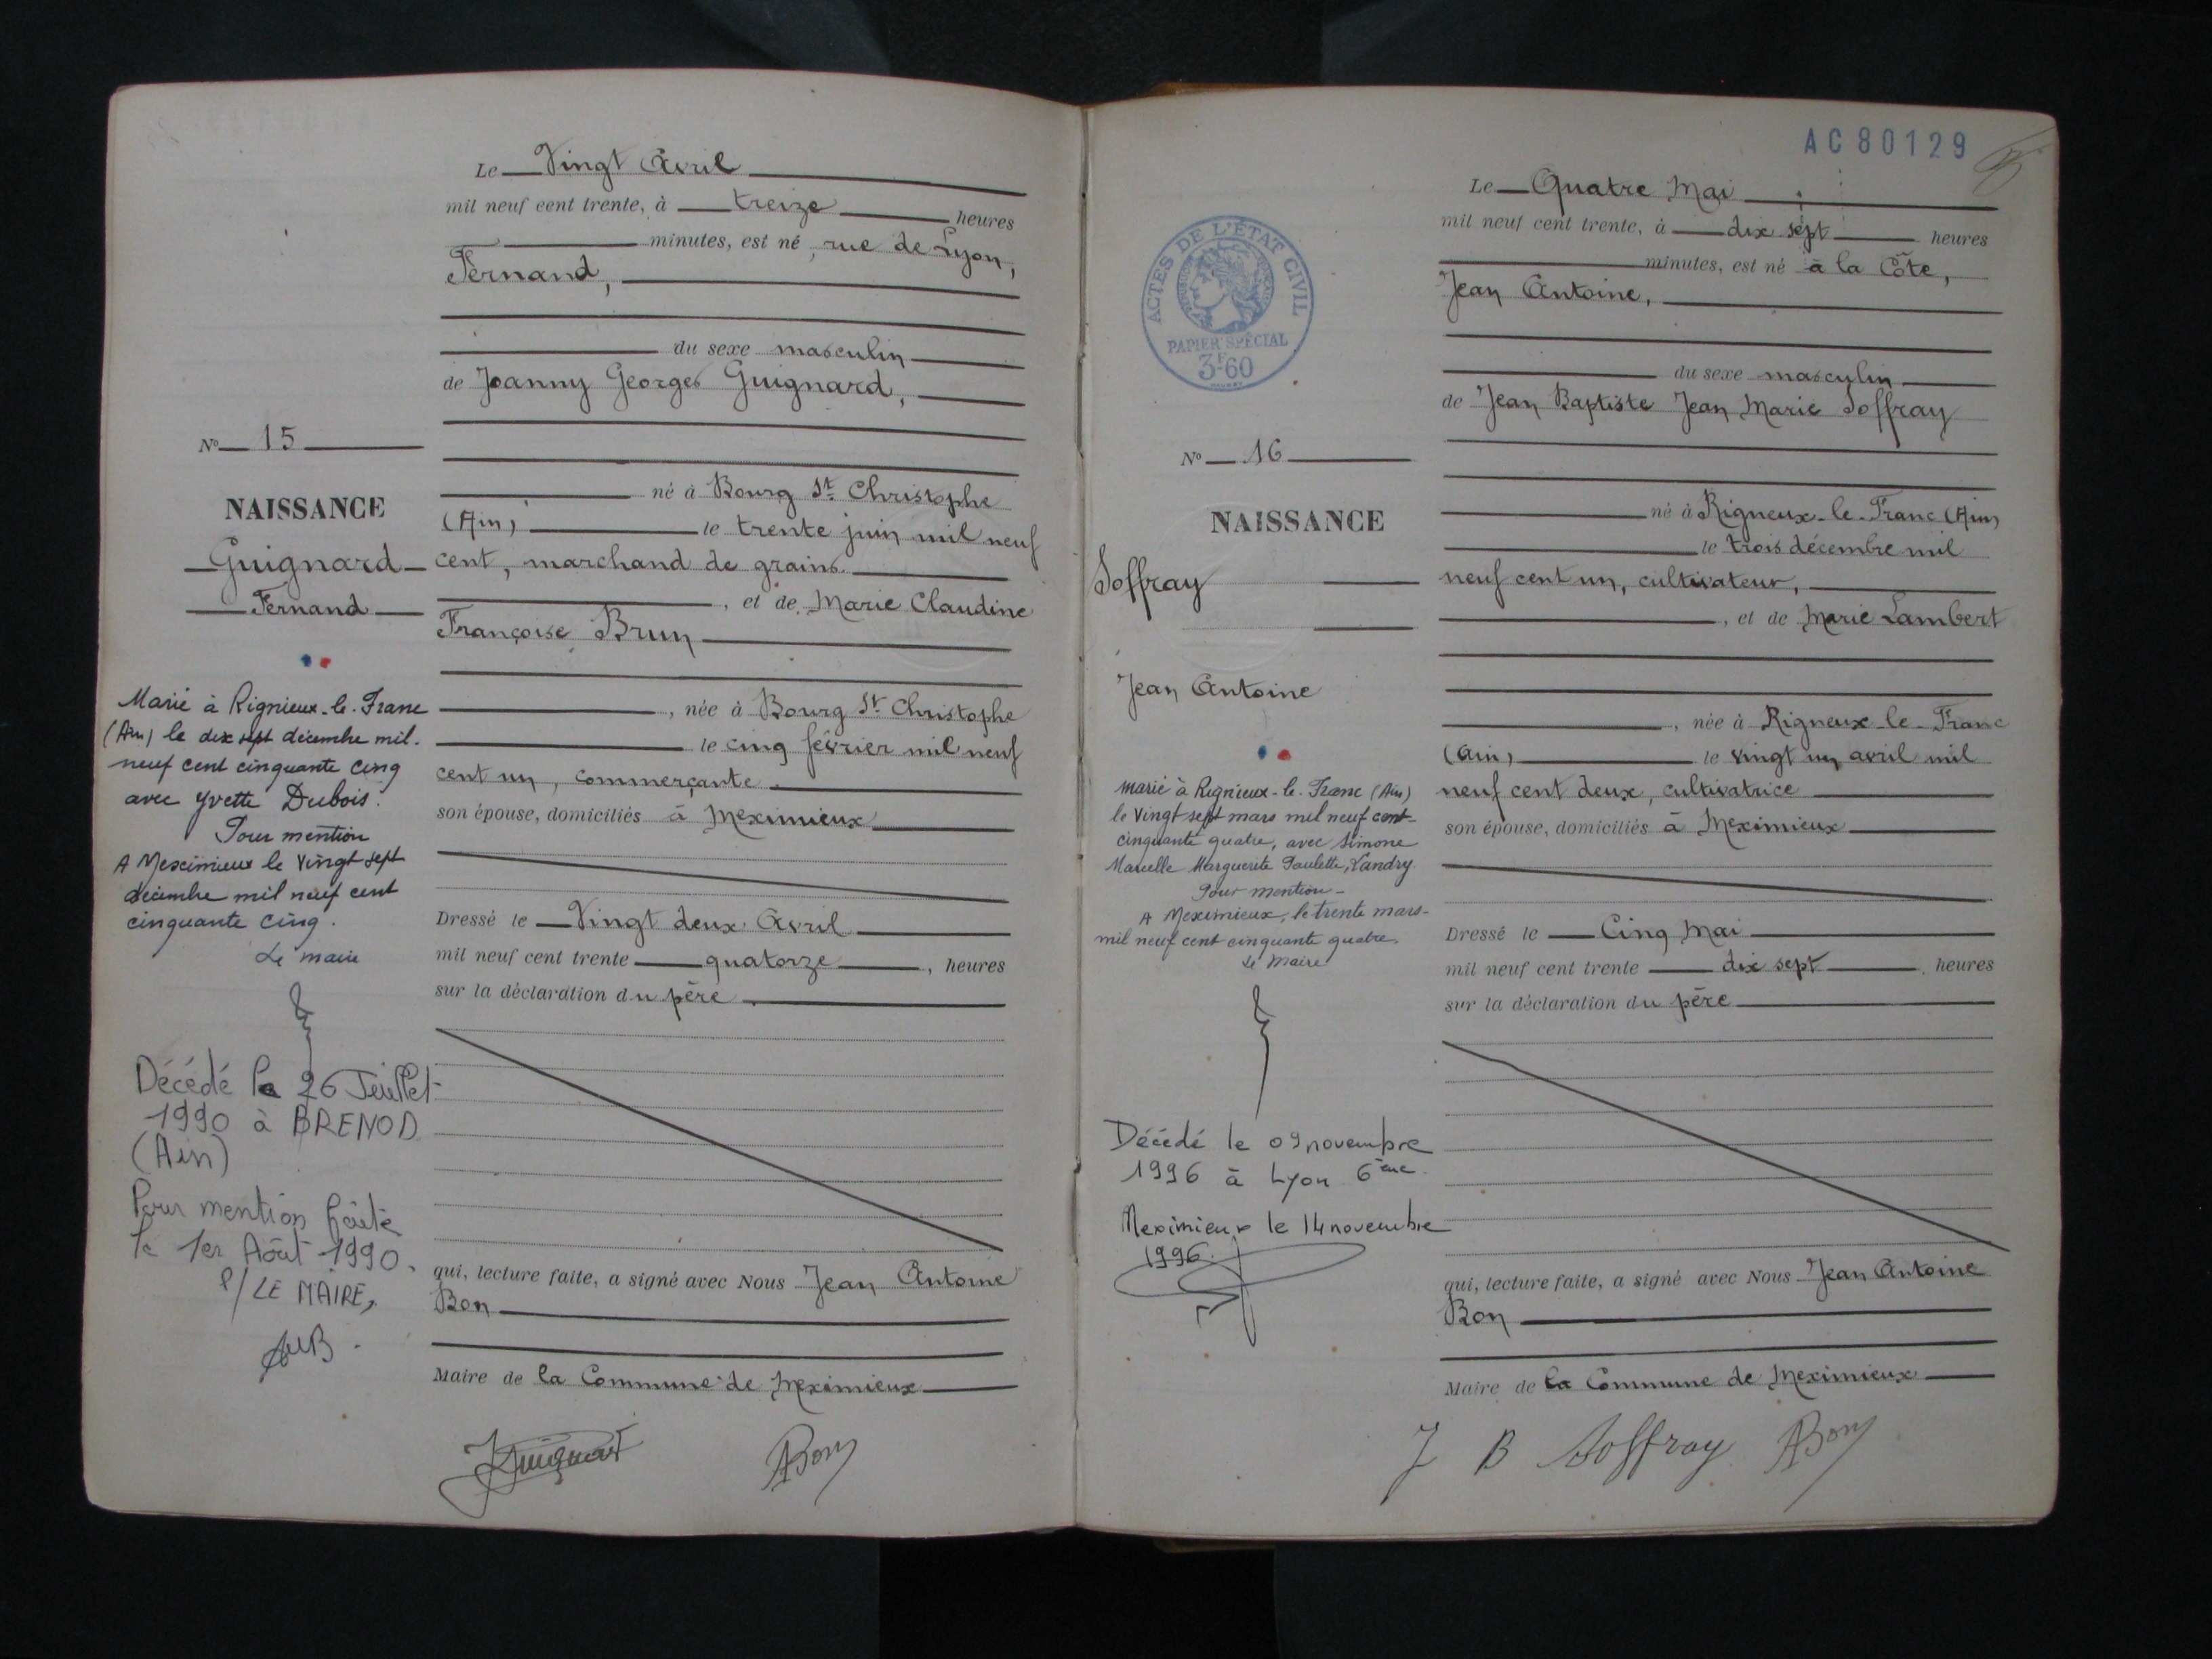 Le Vingt Avril
mil neuf cent trente, à treize heures
minutes, est né, rue de Lyon,
Fernand,
du sexe masculin
de Joanny Georges Guignard,
né à Bourg St Christophe
(Ain) le trente juin mil neuf
cent, marchand de grains.
, et de Marie Claudine
Françoise Brun
, née à Bourg St Christophe
le cinq février mil neuf
cent un, commerçante.
son épouse, domiciliés à Meximieux
Dressé le Vingt deux Avril
mil neuf cent trente quatorze, heures
sur la déclaration du père.
qui, lecture faite, a signé avec Nous Jean Antoine
Bon
Maire de la Commune de Meximieux
JGuignard
ABon
No 15
NAISSANCE
Guignard
Fernand
Marié à Rignieux-le-Franc
(Ain) le dix sept décembre mil.
neuf cent cinquante cinq
avec Yvette Dubois.
Pour mention
A Meximieux le vingt sept
décembre mil neuf cent
cinquante cinq.
Le maire
Décédé le 26 Juillet
1990 à BRENOD
(Ain)
Pour mention faite
le 1er Août 1990.
P/LE MAIRE,
AC80129
ACTES DE L'ÉTAT CIVIL
PAPIER SPÉCIAL
3F60
Le Quatre Mai
mil neuf cent trente, à dix sept heures
minutes, est né à la Côte,
Jean Antoine,
du sexe masculin
de Jean Baptiste Jean Marie Joffray
né à Rigneux-le-Franc (Ain)
le trois décembre mil
neuf cent un, cultivateur,
, et de Marie Lambert
, née à Rigneux-le-Franc
(Ain) le vingt un avril mil
neuf cent deux, cultivatrice
son épouse, domiciliés à Meximieux
Dressé le Cinq Mai
mil neuf cent trente dix sept, heures
sur la déclaration du père
qui, lecture faite, a signé avec Nous Jean Antoine
Bon
Maire de la Commune de Meximieux
J B Joffray
ABon
No 16
NAISSANCE
Joffray
Jean Antoine
Marié à Rignieux-le-Franc (Ain)
le vingt sept mars mil neuf cent
cinquante quatre, avec Simone
Marcelle Marguerite Paulette, Vandry
Pour mention-
A Meximieux, le trente mars-
mil neuf cent cinquante quatre.
Le Maire
Décédé le 09 novembre
1996 à Lyon 6ème
Meximieux le 14 novembre
1996.